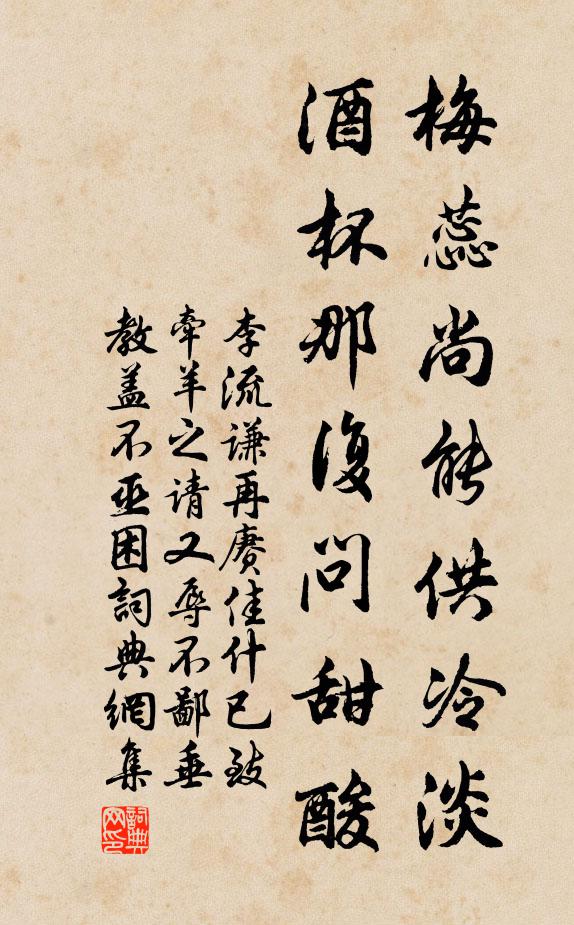 梅蕊尚能供冷淡
酒杯那復問甜酸
李流谦再賡佳什已致
牽羊之請又辱不鄙垂
教盖不亟困詞典網集
詞典网印